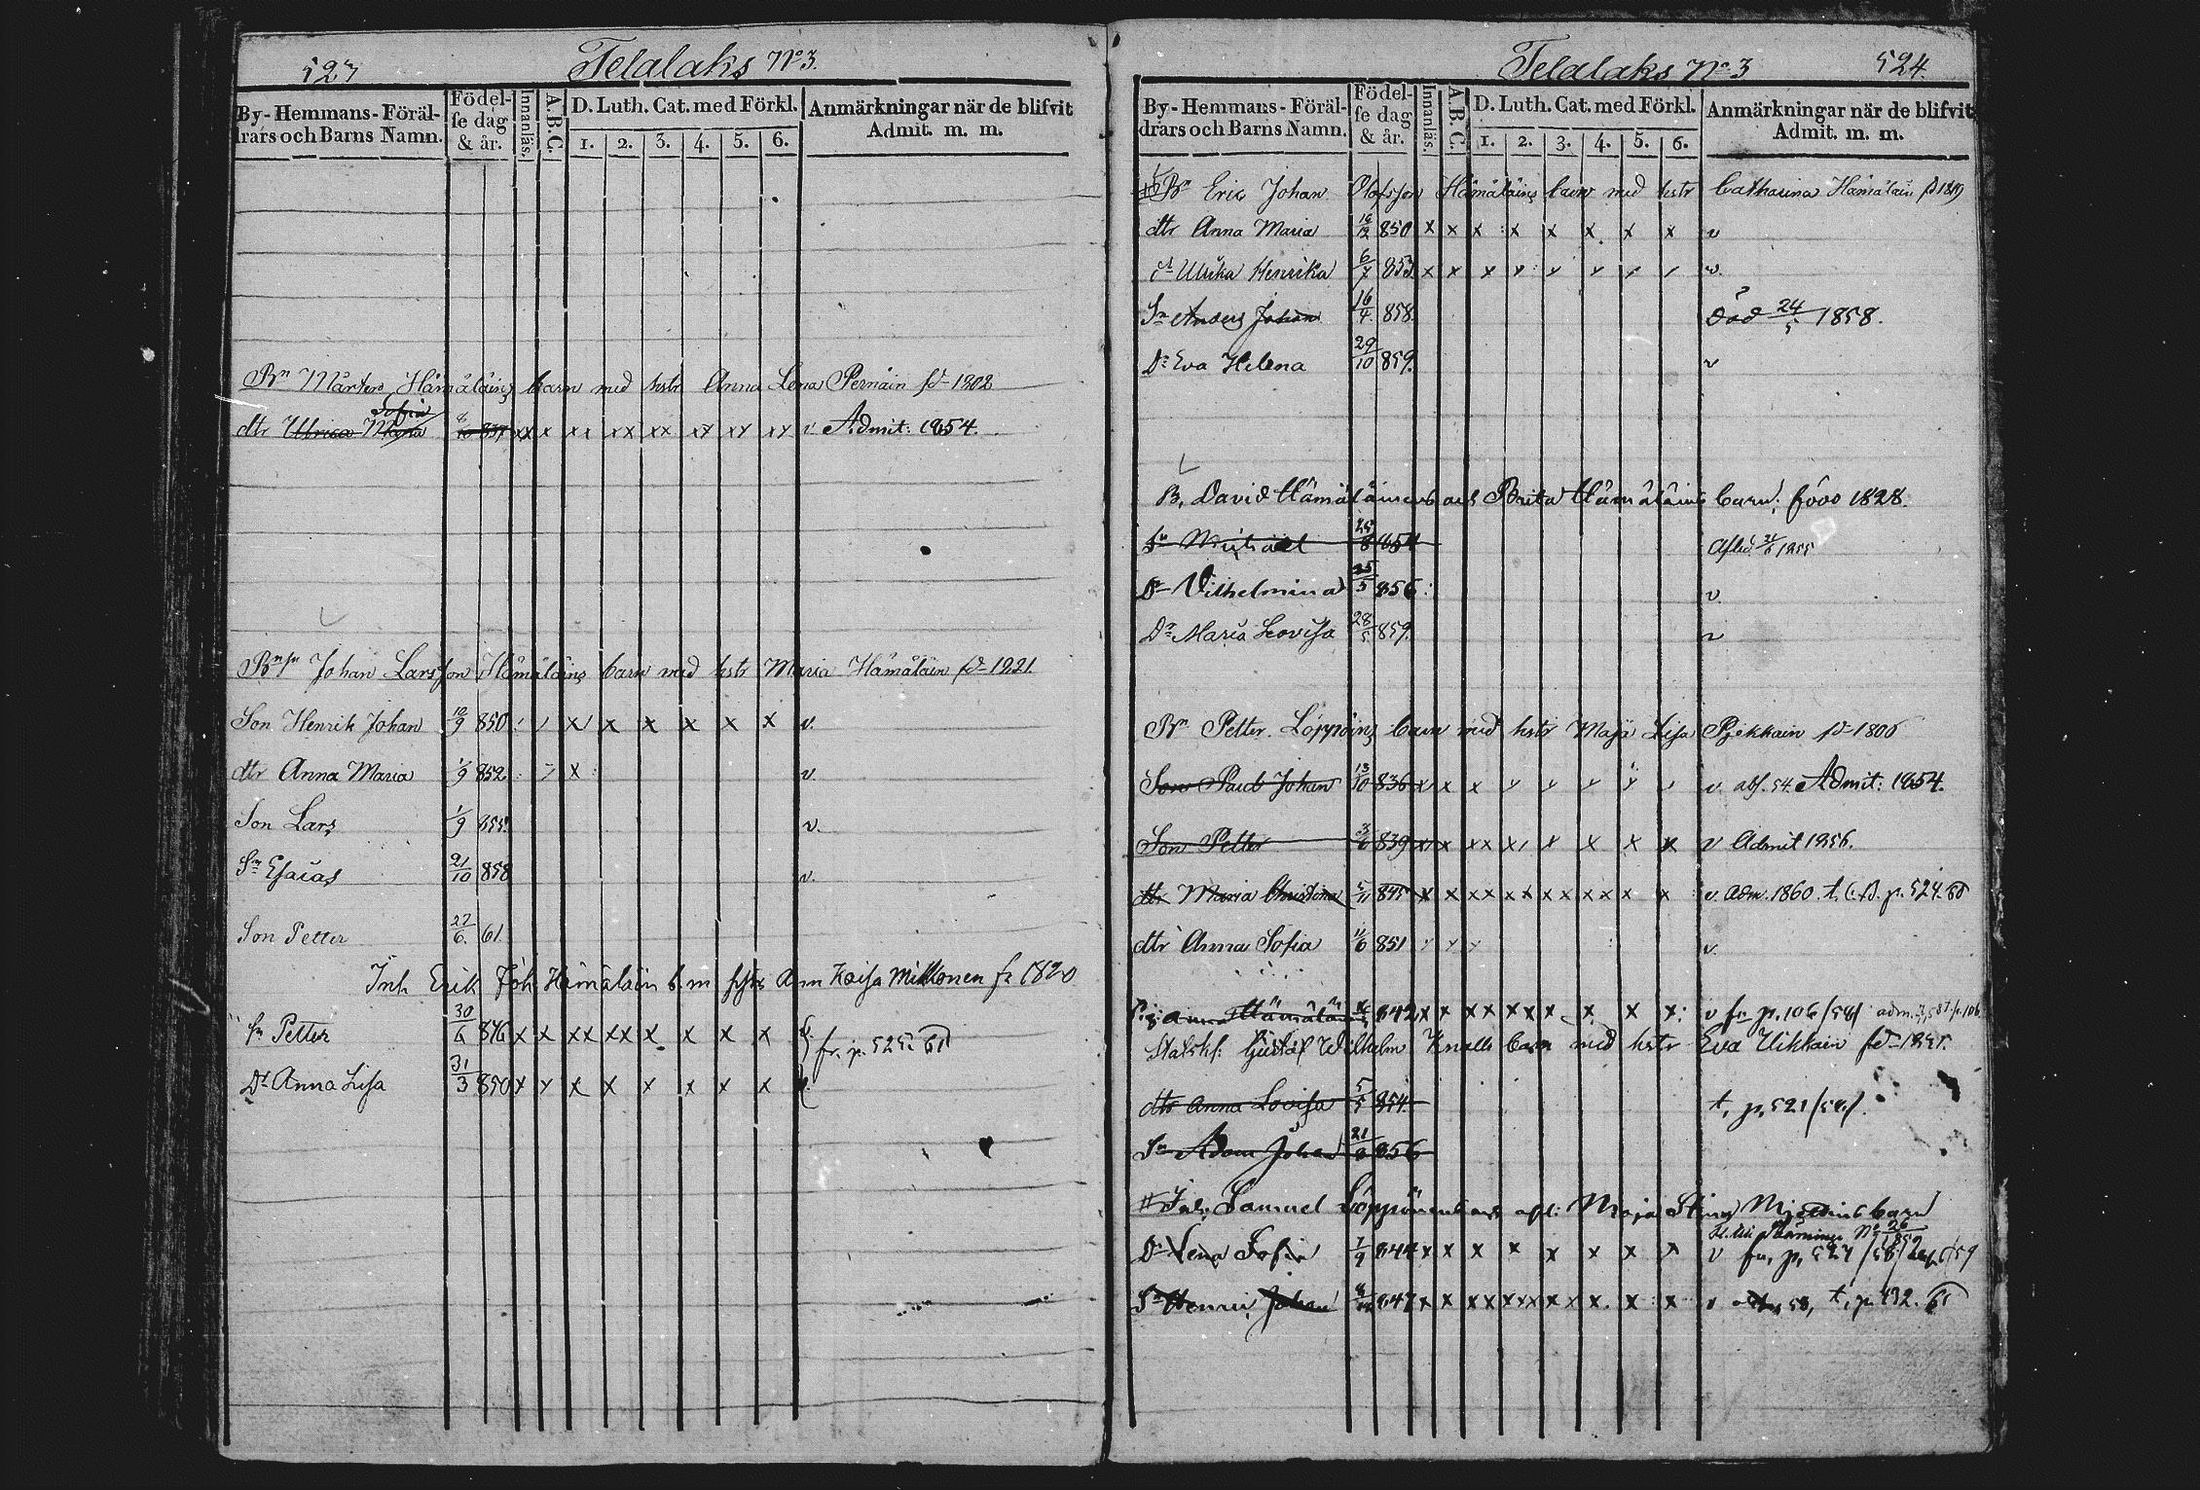 523
Telalaks No 3.
By-Hemmans-Föräl-
drars och Barns Namn.
Födel-
se dag
& år.
Innanläs.
A.B.C.
D. Luth. Cat. med Förkl.
1. 2. 3. 4. 5. 6.
Anmärkningar när de blifvit
Admit. m. m.
Bn Mårten Hämäläins barn med hstr Anna Lena Pernäin fd 1802
Sofia
dtr Ulrica Maria 837 xx x xx xx xx xx xx xx v. Admit: 1854.
Johan Larsson Hämäläins barn med hstr Maria Hämäläin fd 1821.
Son Henrik Johan 12/9 850 x x x x x x v.
dtr Anna Maria 1/9 852 x v.
Son Lars 1/9 855 v.
Sn Esaias 21/10 858 v.
Son Petter 27/6. 61
Inh Erik Joh Hämäläin b. m hstr Ann Kaisa Mikkonen f. 1820
Sn Petter 30/6 846 x x xx xx x x x x
fr. p. 525. 61
Dr Anna Lisa 31/3 850 x x x x x x x x
Telalaks No 3
524
By-Hemmans-Föräl-
drars och Barns Namn.
Födel-
se dag
& år.
Innanläs.
A.B.C.
D. Luth. Cat. med Förkl.
1. 2. 3. 4. 5. 6.
Anmärkningar när de blifvit
Admit. m. m.
Bn Eric Johan Olofsson Hämäläins barn med hstr Catharina Hämäläin fd 1819
dtr Anna Maria 850 x x x x x x x x v
dr Ulrika Henrika 6/7 853 x x x v
Sn Anders Johan 16/4 858. död 24/5 1858.
Dr Eva Helena 29/10 859. v
B. David Hämäläinens och Brita Hämäläins barn, född 1828.
Sn Michael 25/8 854 Afled. 1855
Dr Vilhelmina 25/3 856. v.
Dr Maria Lovisa 28/5 859. v
Bn Petter Löppöins barn med hstr Maja Lisa Pjekkain fd 1806
Son Paul Johan 13/10 836 x x x v. abs. 54. Admit: 1854.
Son Petter 3/6 839 xx x xx x x x x x v Admit 1856.
dtr Maria Christina 5/11 845 x x xx xx xx xx x x v. adm. 1860. t. p. 524. 60
dtr Anna Sofia 11/6 851 v.
Anna Hämäläin 842 x x xx xx x x x x v fr p. 106/58/
Statskf: Gustaf Wilhelm Knalls barn med hstr Eva Ukkain fd
dtr Anna Lovisa 5/5 854. t. p. 521/58/.
Sn Adam Johan 21/8 856
Inh. Samuel Löppönens och afl: Maja Stina barn
Dr Lena Sofia 7/9 844 x x x x x x x x v fr. p. 527/58/
Sn Henric Johan 847 x x xx xxx x x x x v 58, t. p. 432. 61